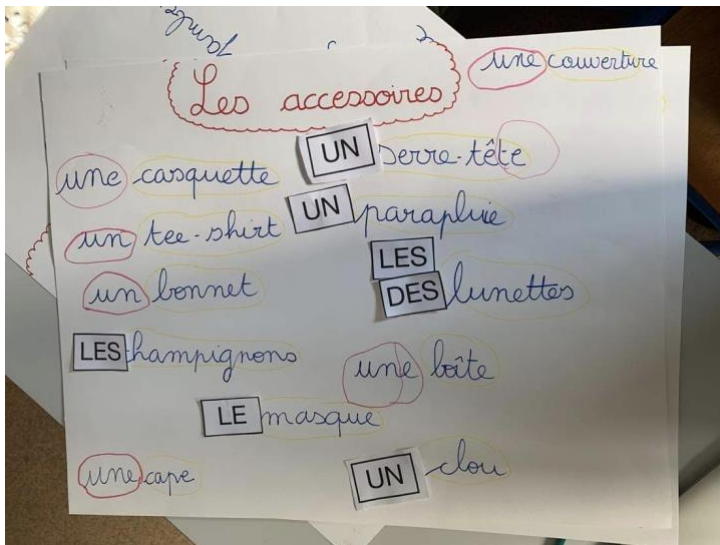 jambe
Les accessoires
une couverture
une casquette
UN serre-tête
un tee-shirt
UN parapluie
un bonnet
LES
DES lunettes
LES hampignons
une boîte
LE masque
une cape
UN clou